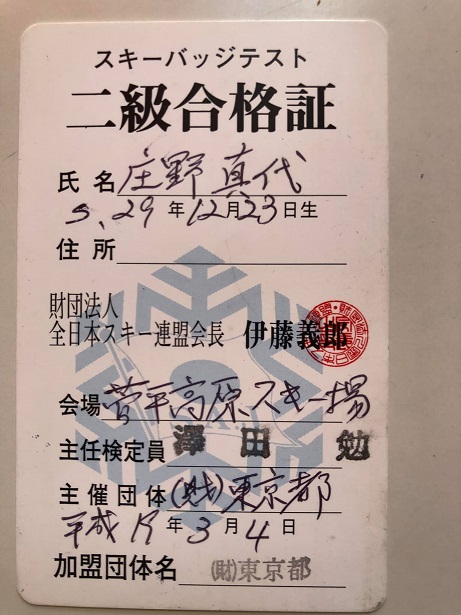 スキーバッジテスト
二級合格証
氏名 庄野真代
S. 29年12月23日生
住所
財団法人
全日本スキー連盟会長 伊藤義郎
会場 菅平高原スキー場
主任検定員 澤田 勉
主催団体 (財)東京都
平成19年3月4日
加盟団体名 (財)東京都